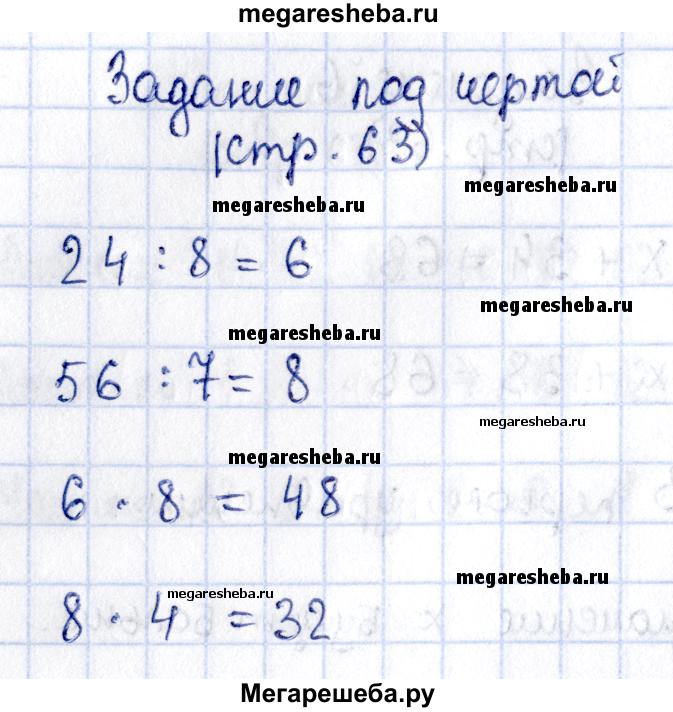 megaresheba.ru
Задание под чертой
(стр. 63)
megaresheba.ru
megaresheba.ru
24 : 8 = 6
megaresheba.ru
megaresheba.ru
56 : 7 = 8
megaresheba.ru
megaresheba.ru
6 · 8 = 48
megaresheba.ru
megaresheba.ru
8 · 4 = 32
Мегарешеба.ру